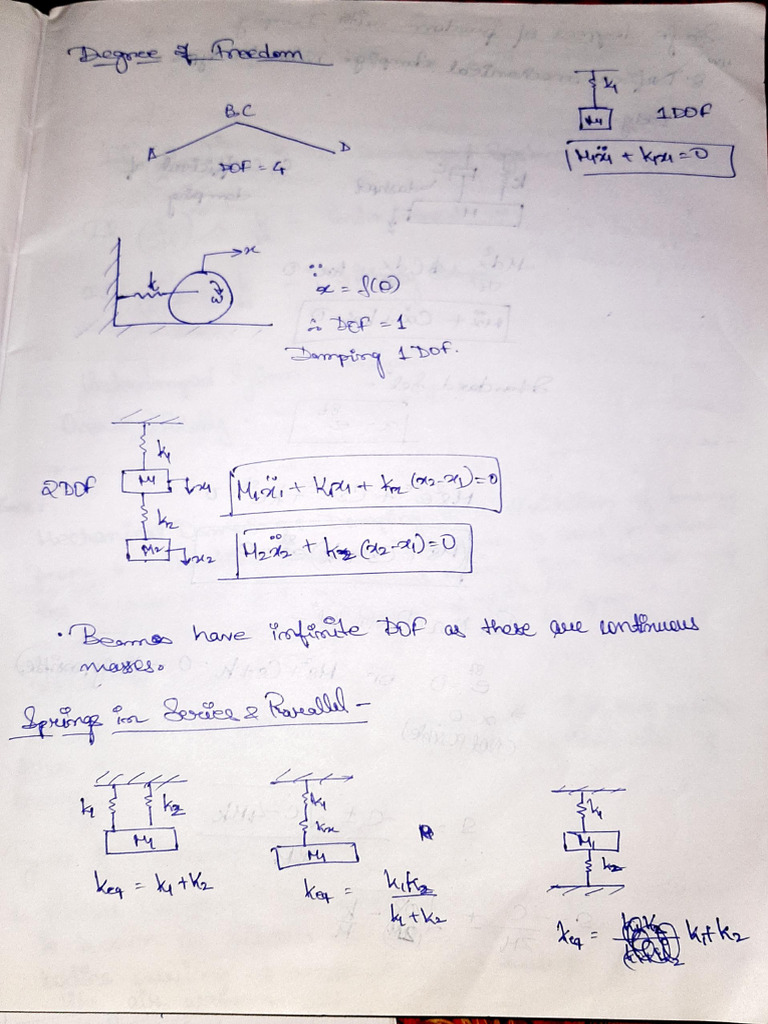 Degree of Freedom
B.C
A
D
DOF = 4
k1
M1
1DOF
M1ẍ1 + K1x1 = 0
k
x
ω
∵ x = f(θ)
∴ DOF = 1
Damping 1DOF.
2DOF
k1
M1
x1
k2
M2
x2
M1ẍ1 + K1x1 + k2 (x2-x1) = 0
M2ẍ2 + k2 (x2-x1) = 0
· Beams have infinite DOF as these are continuous
masses.
Springs in Series & Parallel -
k1
k2
M1
keq = k1 + K2
k1
k2
M1
keq = k1k2 / k1 + k2
k1
M1
k2
keq = k1 + k2